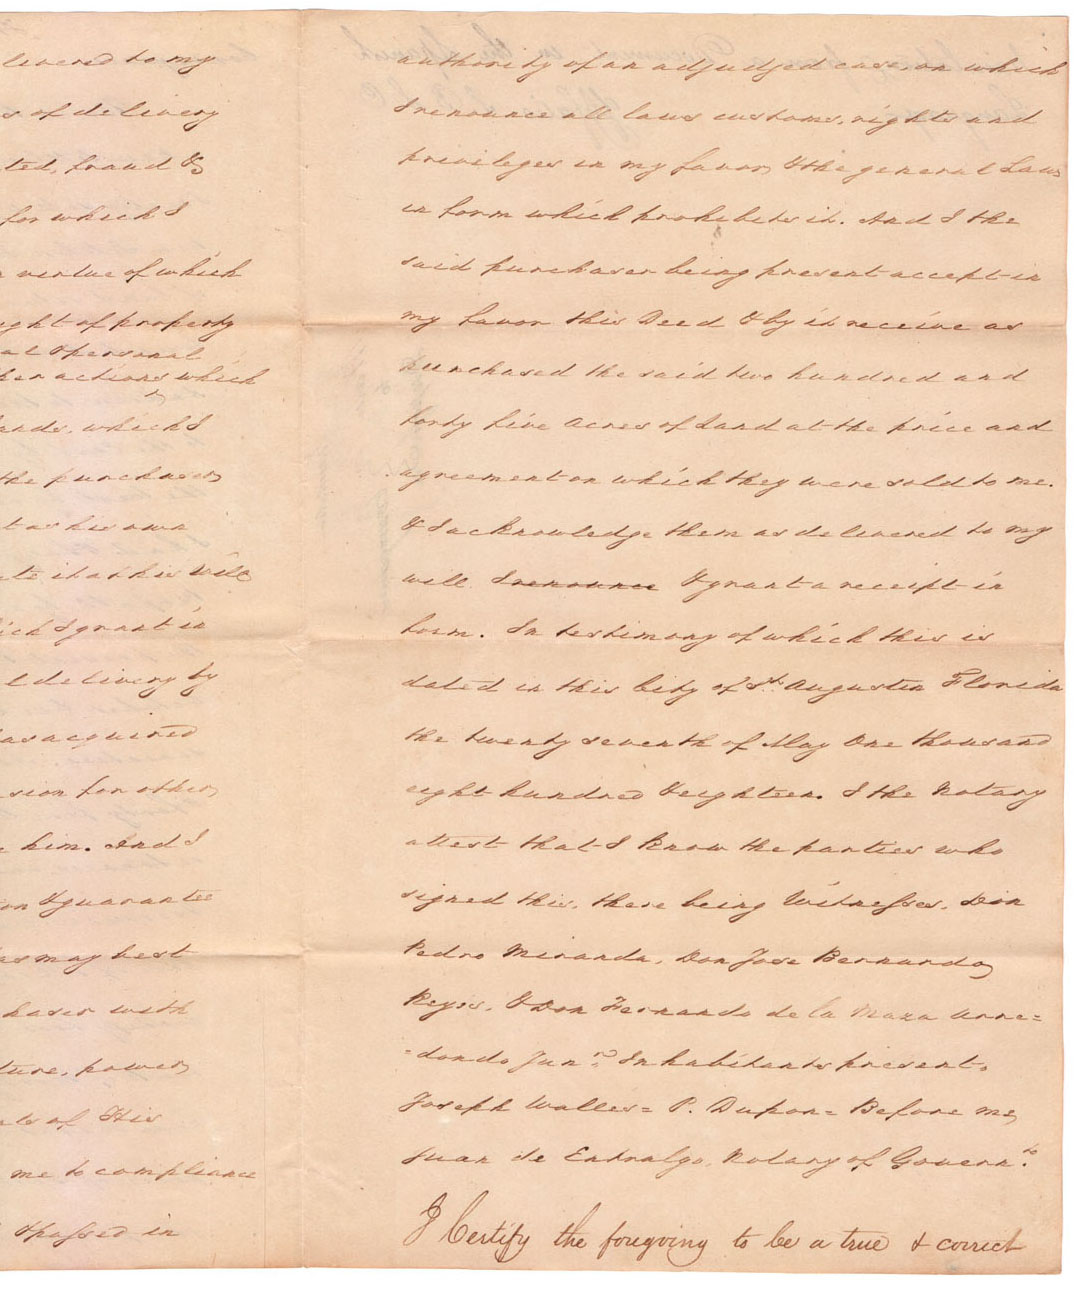 levered to my
s of delivery
ted, fraud &
for which I
virtue of which
ght of property
al & personal
her actions which
ands, which I
the purchaser,
t as his own
ate it at his will
ich I grant in
l delivery by
has acquired
sion for other,
him. And I
on & guarantee
as may best
chaser with
ture, power,
ts of His
me to compliance
& passed in
authority of an adjudged case, on which
I renounce all laws customs, rights and
privileges in my favor, & the general Laws
in form which prohibits it. And I the
said purchaser being present accept in
my favor this Deed & by it receive as
purchased the said two hundred and
forty five Acres of Land at the price and
agreement on which they were sold to me.
& I acknowledge them as delivered to my
will. I renounce & grant a receipt in
form. In testimony of which this is
dated in this City of St. Augustin Florida
the twenty seventh of May One thousand
eight hundred & eighteen. I the Notary
attest that I know the parties who
signed this, these being Witnesses, Don
Pedro Miranda, Don Jose Bernardo,
Reyes, & Don Fernando de la Maza Arre=
=dondo Junr. Inhabitants present.
Joseph Walles= P. Dupon= Before me,
Juan de Entralgo, Notary of Governt.
I Certify the foregoing to be a true & correct